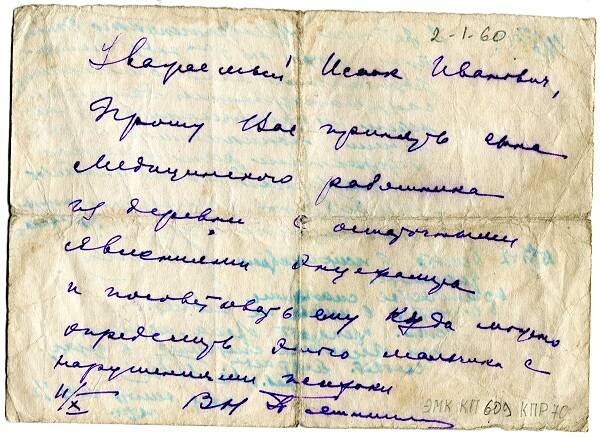 2-1-60
Уважаемый Исаак Иванович,
Прошу Вас принять сына
медицинского работника
из деревни с остаточными
явлениями энцефалита
и посоветовать ему куда можно
определить этого мальчика с
нарушениями психики
11/X ВН
ЭМК КП 609 КПР 70